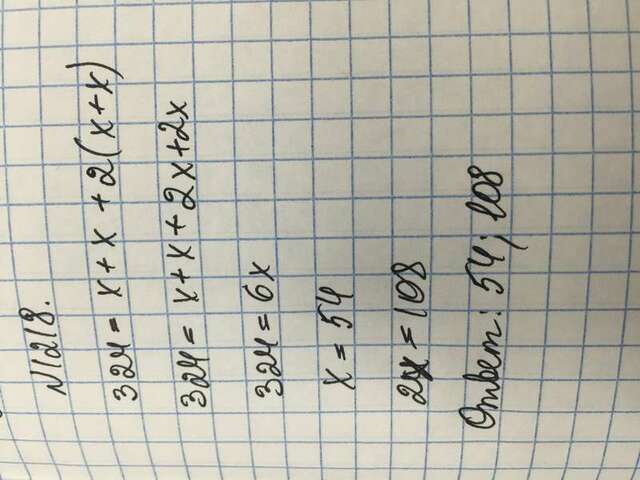 N1218.
324 = x + x + 2(x+x)
324 = x + x + 2x + 2x
324 = 6x
x = 54
2x = 108
Ответ: 54; 108